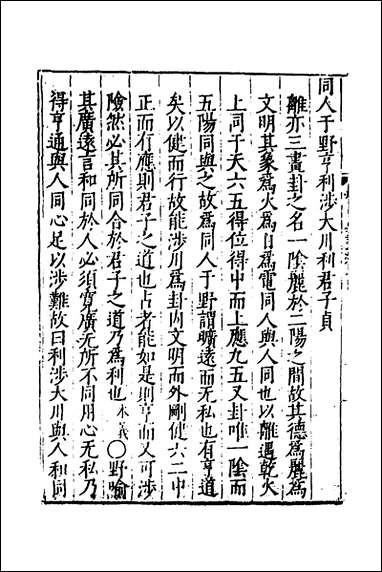 同人于野亨利涉大川利君子貞
離亦三畫卦之名一陰麗於二陽之間故其德為麗為
文明其象為火為日為電同人與人同也以離遇乾火
上同于天六二得位得中而上應九五又卦唯一陰而
五陽同與之故為同人于野謂曠遠而无私也有亨道
矣以健而行故能涉川為卦內文明而外剛健六二中
正而行應則君子之道也占者能如是則亨而又可涉
險然必其所同合於君子之道乃為利也本義〇野喻
其廣遠言和同於人必須寬廣无所不同用心无私乃
得亨通與人同心足以涉難故曰利涉大川與人和同